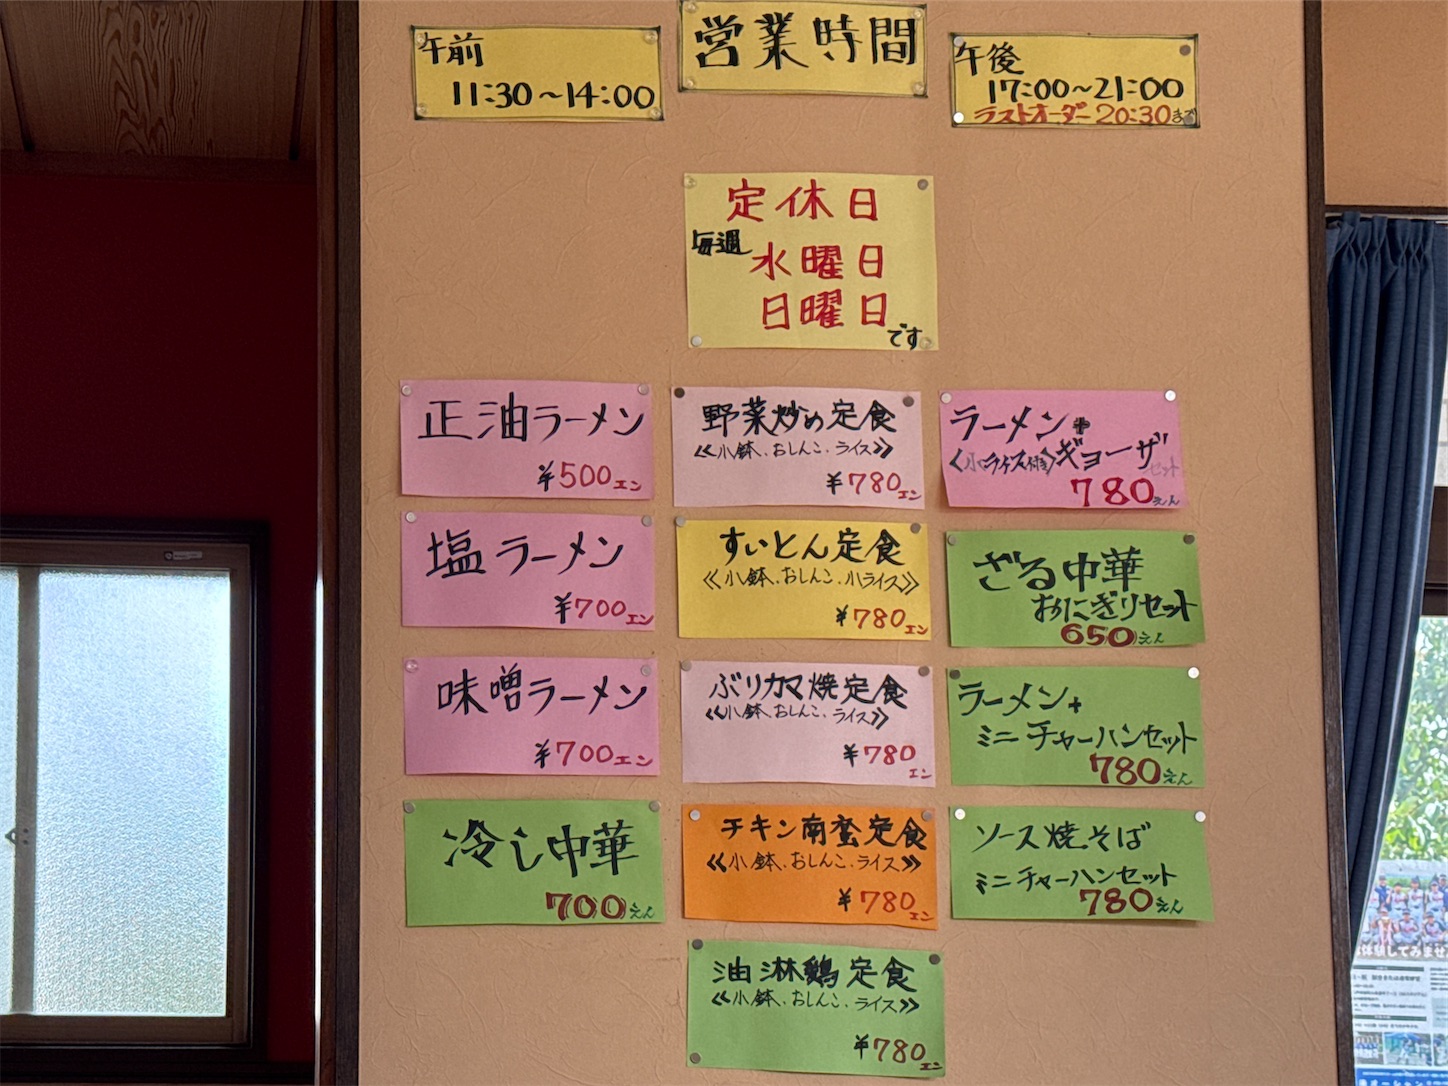 営業時間
午前
11:30～14:00
午後
17:00～21:00
ラストオーダー 20:30まで
定休日
毎週
水曜日
日曜日
です
正油ラーメン
¥500エン
塩ラーメン
¥700エン
味噌ラーメン
¥700エン
冷し中華
700えん
野菜炒め定食
≪小鉢、おしんこ、ライス≫
¥780エン
すいとん定食
≪小鉢、おしんこ、小ライス≫
¥780エン
ぶりカマ焼定食
≪小鉢、おしんこ、ライス≫
¥780
エン
チキン南蛮定食
≪小鉢、おしんこ、ライス≫
¥780エン
油淋鶏定食
≪小鉢、おしんこ、ライス≫
¥780エン
ラーメン+
〈小ライス付〉ギョーザ
セット
780えん
ざる中華
おにぎりセット
650えん
ラーメン+
ミニチャーハンセット
780えん
ソース焼そば
ミニチャーハンセット
780えん
体験してみませ